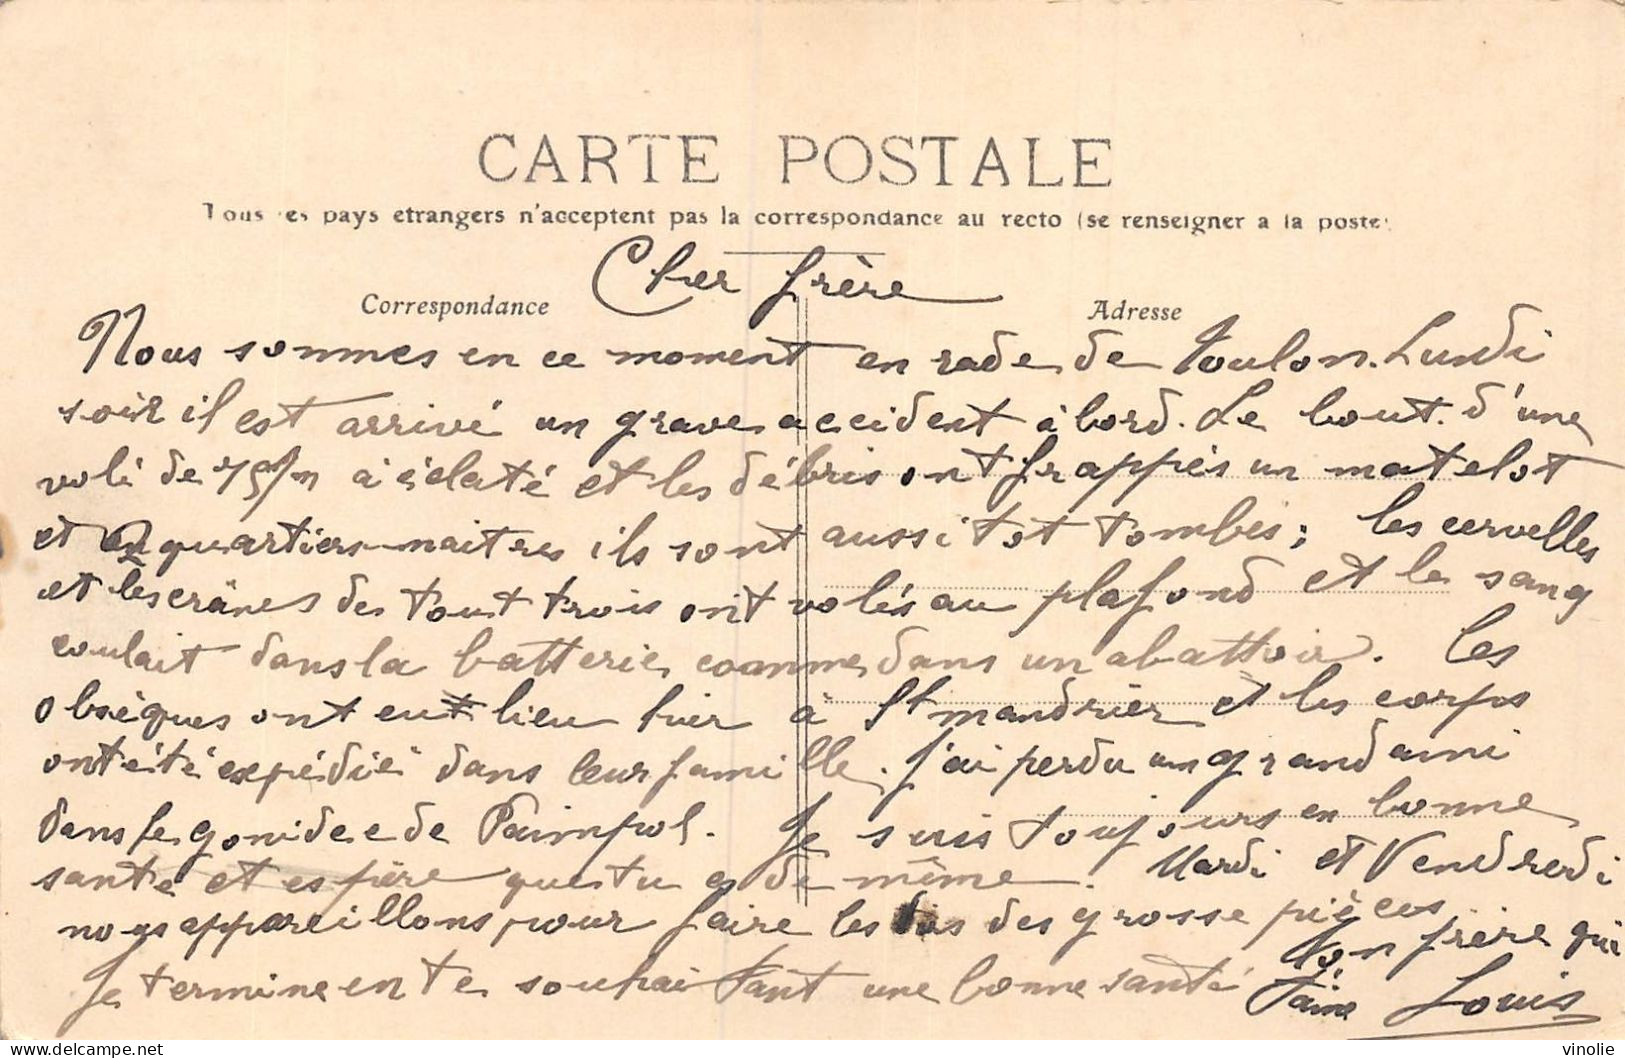 CARTE POSTALE
Tous les pays etrangers n'acceptent pas la correspondance au recto (se renseigner a la poste)
Cher frère
Correspondance
Adresse
Nous sommes en ce moment en rade de Toulon. Lundi
soir il est arrivé un grave accident à bord. Le bout d'une
volé de 75/m à éclaté et les débris ont frappés un matelot
et 2 quartiers-maitres ils sont aussitot tombés; les cervelles
et les crânes des tout trois ont volés au plafond et le sang
coulait dans la batterie comme dans un abattoir. Les
obsèques ont eut lieu hier à St mandrier et les corps
ont été expédié dans leur famille. J'ai perdu un grand ami
dans Le gonidec de Paimpol. Je suis toujours en bonne
santé et espère que tu es de même. Mardi et Vendredi
nous appareillons pour faire les des grosse pièces
Je termine en te souhaitant une bonne santé Ton frère qui
t'aime Louis
vinolie